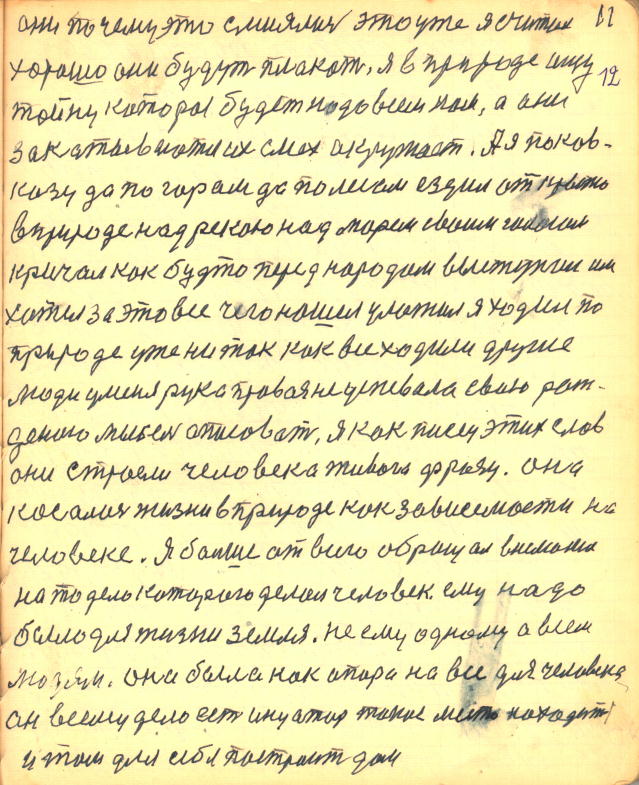 они почему это смиялис это уже я считал 11
хорошо они будут плакат, я в природе ищу 12
тойну которое будет надовсем ном, а они
закатываются их смех окружает. А я по ков-
казу да по горам да по лесам ездил открыто
в природе над рекою над морем своим голосом
кричал как будто перед народам выступал им
хотел за это все чего нашел уложил я ходил по
природе уже ни так как все ходили другие
люди у меня рука провоя не успевала свою рож-
деною мысел описоват, я как писец этих слов
они строели человека живога фразу. она
косалас жизни в природе как зависемости на
человеке. Я болше от всего обращал внеманиа
на то дело которого делал человек. ему надо
было для жизни земля. не ему одному а всем
людям. она была как опора на все для человека
он всему дело ест инцатор такое место находит
и там для себя построит дом